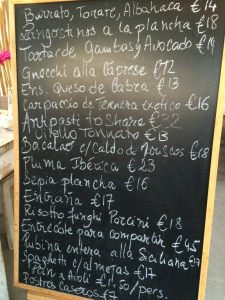 Burrata, Tomate, Albahaca €14
Langostinos a la plancha €18
Tartar de Gambas y Avocado €14
Gnocchi alla Caprese €12
Ens. Queso de Cabra €13
Carpaccio de Ternera exotico €16
Antipasti to Share €32
Vitello Tonnato €13
Bacalao c/Caldo de €18
Pluma Ibérica €23
Sepia plancha €16
Entraña €17
Risotto funghi Porcini €18
Entrecote para compartir €45
Lubina entera alla Siciliana €17
Spaghetti c/almejas €17
Pan & Aioli €1,50/pers.
Postres Caseros €7